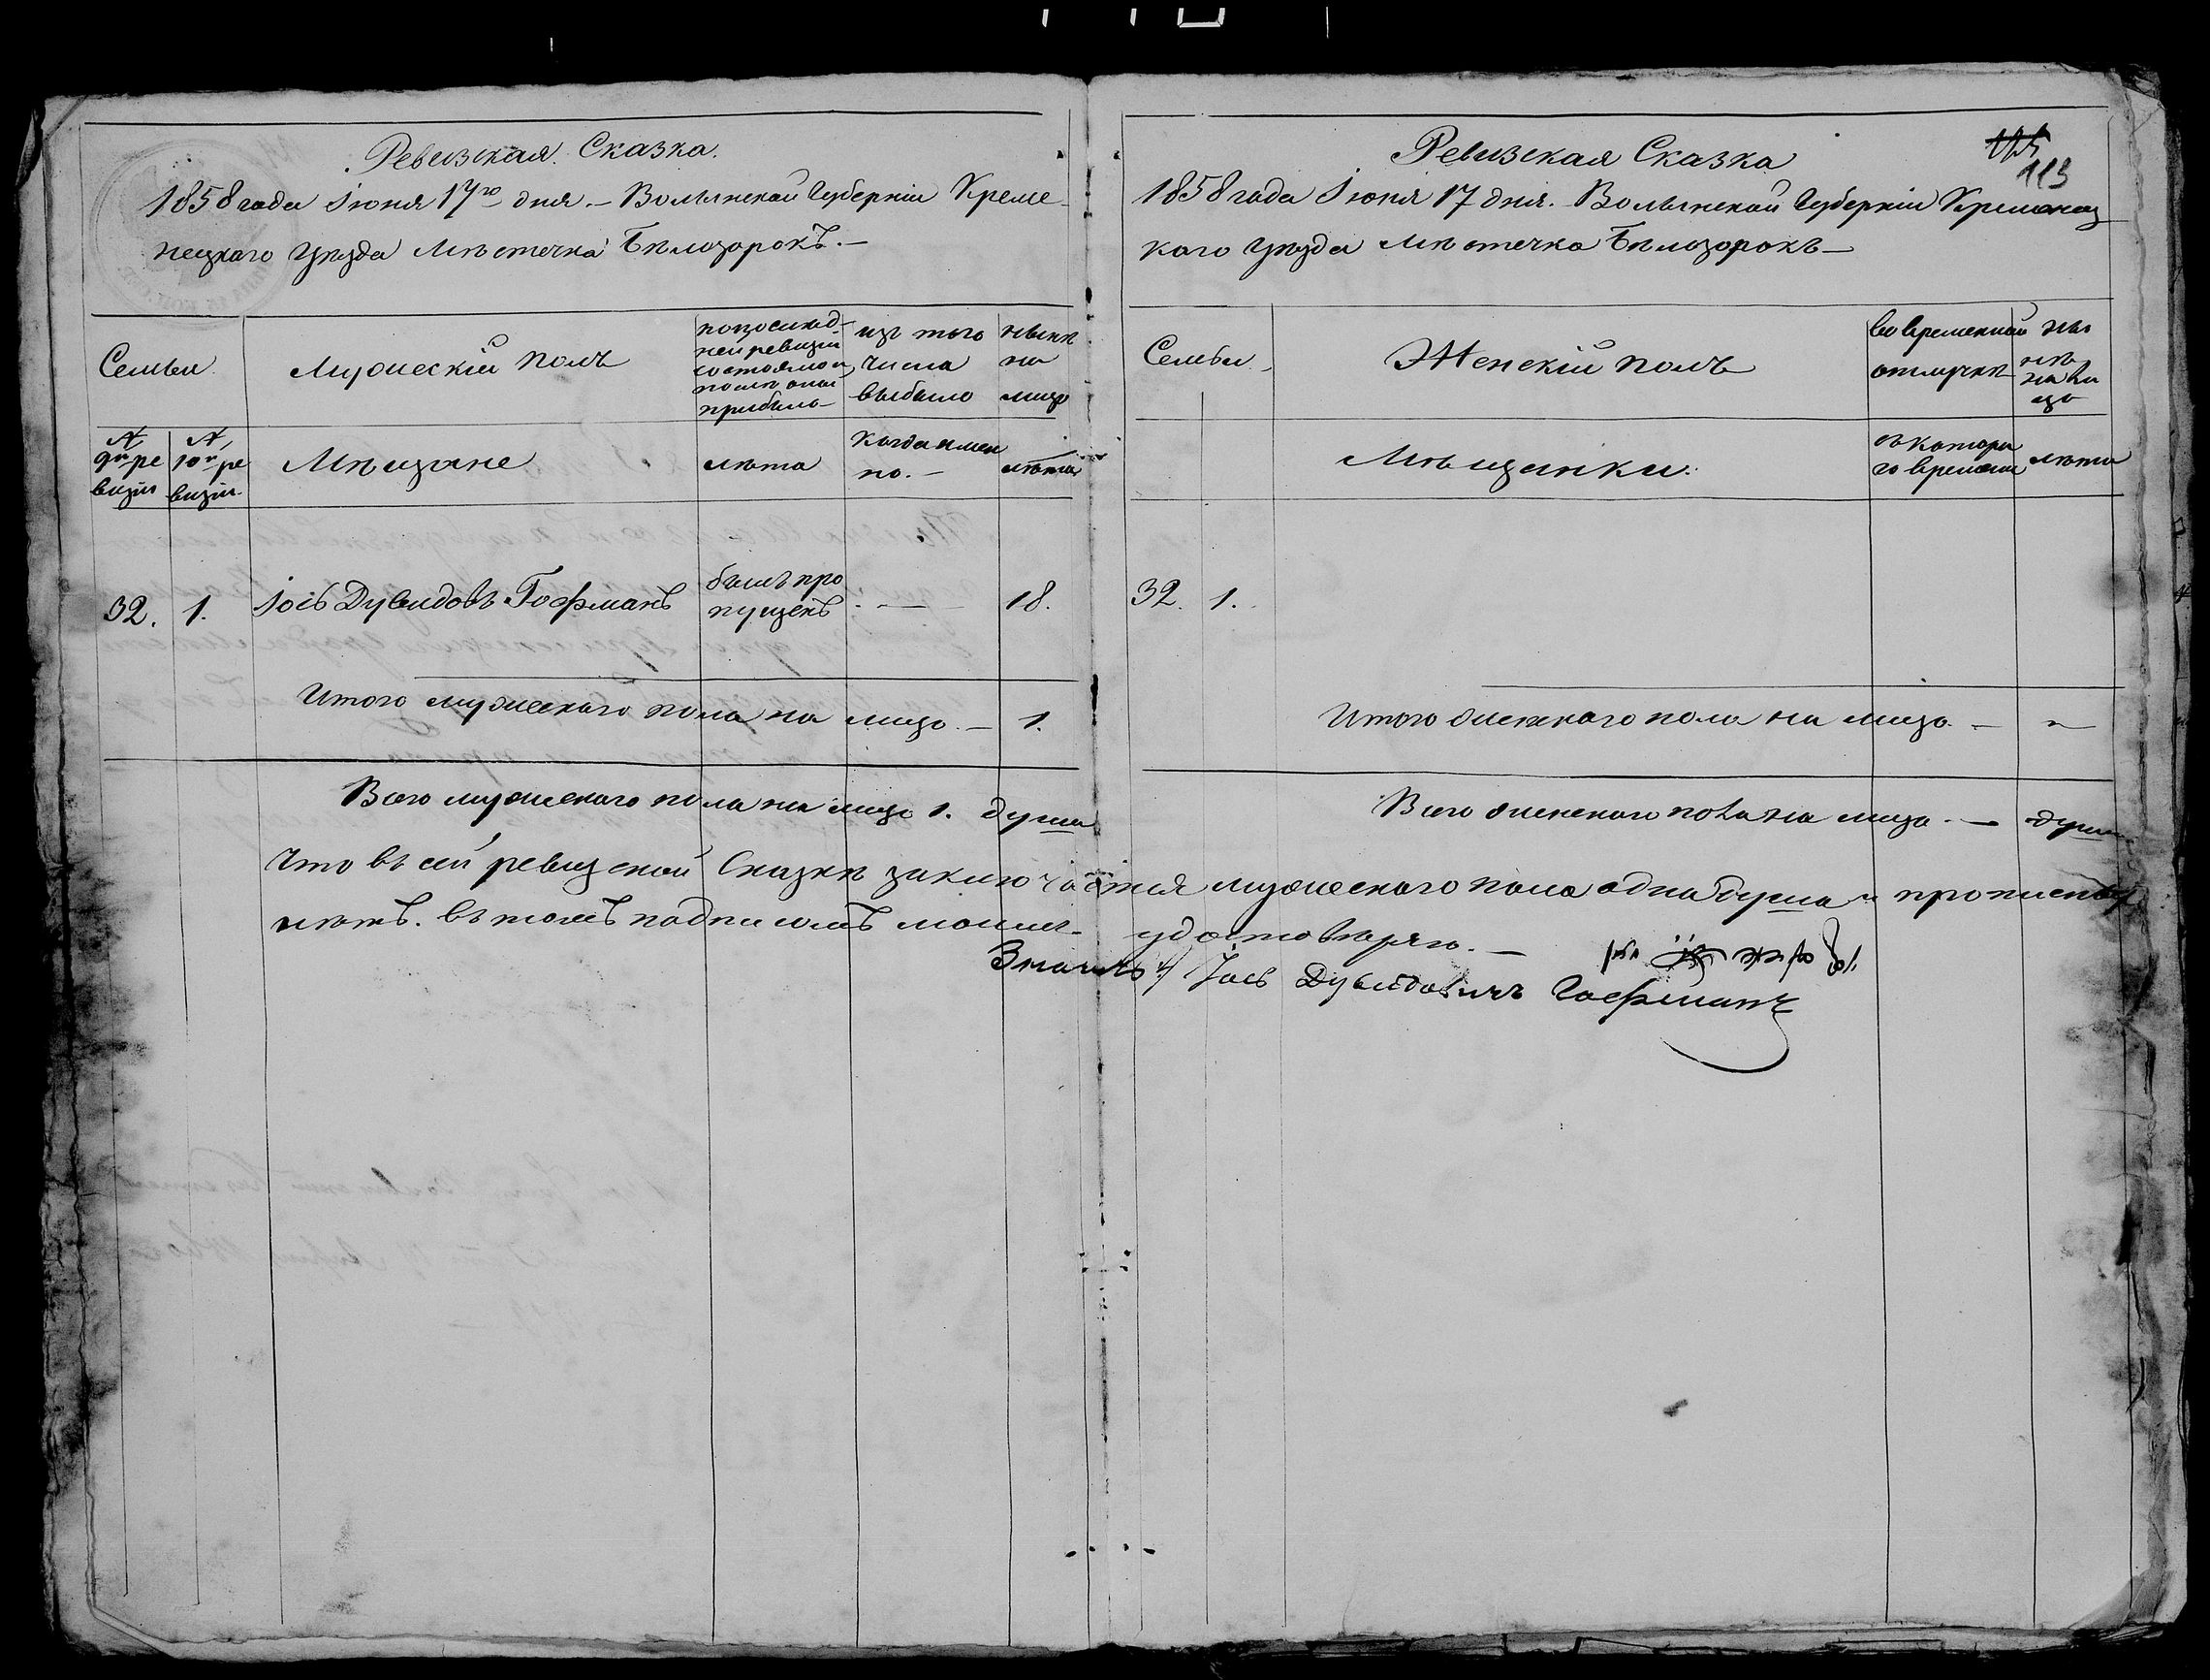 Ревизская Сказка.
1858 года Іюня 17го дня. – Волынской Губерніи Креме-
нецкаго Уѣзда Мѣстечка Бѣлозорокъ. –
Семьи
Мужескій полъ
по послѣд-
ней ревизіи
состояло и
послѣ оной
прибыло
изъ того
числа
выбыло
нынѣ
на
лицо
№
9й ре
визіи
№
10й ре
визіи
Мѣщане
лѣта
когда имен
но. –
лѣта
32. 1. Іосъ Дувидовъ Гофманъ
былъ про
пущенъ
– 18.
Итого мужескаго пола на лицо. – 1.
Всего мужескаго пола на лицо 1. душа
Ревизская Сказка
125
113
1858 года Іюня 17 дня. Волынской Губерніи Кременец
каго Уѣзда Мѣстечка Бѣлозорокъ –
Семьи
Женскій полъ
во временной
отлучкѣ
ны
нѣ
на ли
цо
Мѣщанки.
съ котора
го времени
лѣта
32. 1.
Итого женскаго пола на лицо. – "
Всего женскаго пола на лицо. – душъ
Что въ сей ревизской Сказкѣ заключается мужескаго пола одна душа и прописныхъ
нѣтъ. въ томъ подписомъ моимъ удостовѣряю. –
Іосъ Дувидовичъ Гофманъ